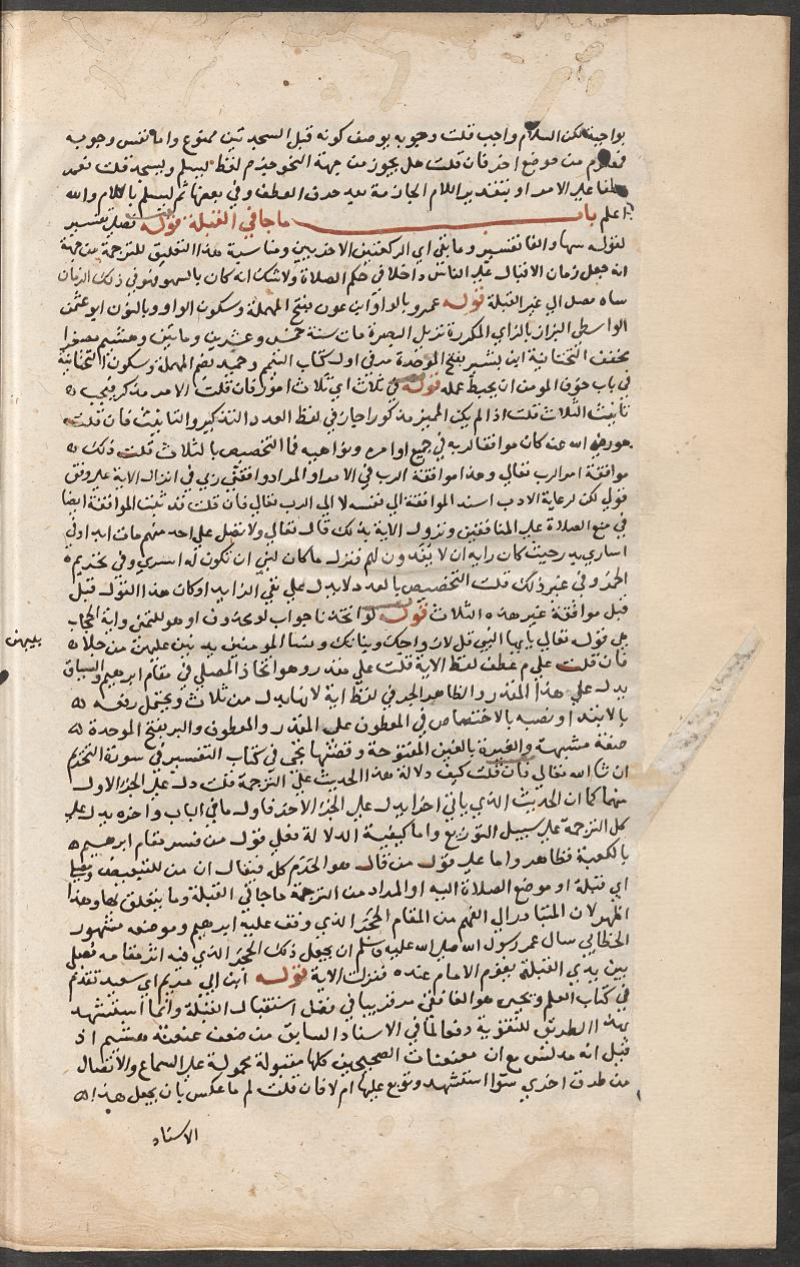 بواجبة لكن السلام واجب قلت وجوبه بوصف كونه قبل السجدتين ممنوع واما نفس وجوبه
فمعلوم من موضع اخر فان قلت هل يجوز من جهة النحو جزم لفظ ليسلم وليسجد قلت نعم
عطفا علي الامر او بتقدير اللام الجازمة بعد حرف العطف وفي بعضها ثم ليسلم باللام والله
اعلم باب ماجا في القبلة قوله فصلي تفسير
لقوله سها والفا تفسيرية وما بقي اي الركعتين الاخريين ومناسبة هذا التعليق للترجمة من جهة
انه جعل زمان الاقبال علي الناس داخلا في حكم الصلاة ولا شك انه كان بالسهو فهو في ذلك الزمان
ساه مصل الي غير القبلة قوله عمرو بالواو ابن عون بفتح المهملة وسكون الواو وبالنون ابو عثمن
الواسطي البزاز بالزاي المكررة نزيل البصرة مات سنة خمس وعشرين ومايتين وهشيم مصغرا
مخفف التحتانية ابن بشير بفتح الموحدة مر في اول كتاب التيمم وحميد بضم المهملة وسكون التحتانية
في باب خوف المومن ان يحبط عمله قوله في ثلاث اي ثلاث امور فان قلت الامر مذكر فيجب
تانيث الثلاث قلت اذا لم يكن المميز مذكورا جاز في لفظ العدد التذكير والتانيث فان قلت
هو رضي الله عنه كان موافقا لربه في جميع اوامره ونواهيه فما التخصيص بالثلاث قلت ذلك
موافقة امر الرب تعالي وهذا موافقة الرب في الامر او المراد وافقني ربي في انزال الاية علي وفق
قولي لكن لرعاية الادب اسند الموافقة الي نفسه لا الي الرب تعالي فان قلت قد ثبت الموافقة ايضا
في منع الصلاة علي المنافقين ونزول الاية بذلك قال تعالي ولا تصل علي احد منهم مات ابدا وفي
اساري بدر حيث كان رايه ان لا يفدون لهم فنزل ما كان لنبي ان تكون له اسري وفي تحريم
الخمر وفي غير ذلك قلت التخصيص بالعدد لا يدل علي نفي الزايد او كان هذا القول قبل
قبل موافقة غير هذه الثلاث قوله لو اتخذنا جواب لو محذوف او هو للتمني واية الحجاب
هي قوله تعالي يايها النبي قل لازواجك وبناتك ونسا المومنين يدنين عليهن من جلا
بيبهن
فان قلت علي م عطف لفظ الاية قلت علي مقدر وهو اتخاذ المصلي في مقام ابرهيم والسياق
يدل علي هذا المقدر والظاهر الجر في لفظ اية لانها بدل من ثلاث ويحتمل رفعه
بالابتدا ونصبه بالاختصاص في المعطوف علي المقدر والمعطوف والبر بفتح الموحدة
صفة مشبهة والغيرة بالغين المفتوحة وقصتها يجي في كتاب التفسير في سورة التحريم
ان شا الله تعالي فان قلت كيف دلالة هذا الحديث علي الترجمة قلت دل علي الجزء الاول
منها كما ان الحديث الذي ياتي اخرا يدل علي الجزء الاخر فاول ما في الباب واخره يدل علي
كل الترجمة علي سبيل التوزيع واما كيفية الدلالة فعلي قول من فسر مقام ابرهيم
بالكعبة فظاهر واما علي قول من قال هو الحرم كله فيقال ان من للتبعيض ومصلي
اي قبلة او موضع الصلاة اليه او المراد من الترجمة ما جا في القبلة وما يتعلق بها وهذا
اظهر لان المتبادر الي الفهم من المقام الحجر الذي وقف عليه ابرهيم وموضعه مشهور
الخطابي سال عمر رسول الله صلي الله عليه وسلم ان يجعل ذلك الحجر الذي فيه اثر مقامه مصلي
بين يدي القبلة يقوم الامام عنده فنزلت الاية قوله ابن ابي مريم اي سعيد تقدم
في كتاب العلم ويحيي هو الغافقي مر قريبا في فضل استقبال القبلة وانما استشهد
بهذا الطريق للتقوية دفعا لما في الاسناد السابق من ضعف عنعنة هشيم اذ
قيل انه مدلس مع ان معنعنات الصحيحين كلها مقبولة محمولة علي السماع والاتصال
من طرق اخري سوا استشهد وتوبع عليها ام لا فان قلت لم ما عكس بان يجعل هذا
الاسناد